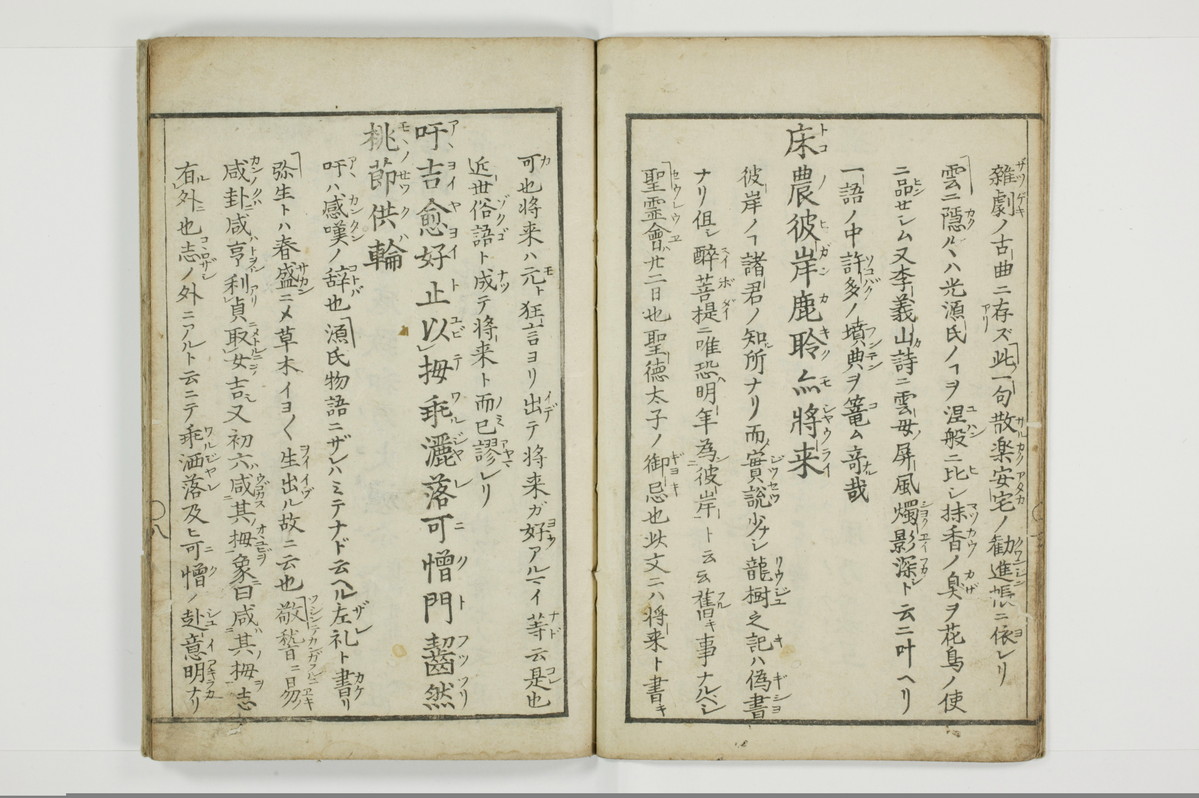 雜劇ノ古曲ニ存ズ此一句散楽安宅ノ勧進帳ニ依レリ
雲ニ隱ルヽハ光源氏ノヿヲ涅般ニ比シ抹香ノ臭ヲ花鳥ノ使
ニ品せシム又李義山詩ニ雲母屏風燭影深ト云ニ叶ヘリ
一語ノ中許多ノ墳典ヲ篭ム竒哉
床農彼岸鹿聆亦將来
彼岸ノヿ諸君ノ知所ナリ而實説少ナシ龍樹之記ハ偽書
ナリ但シ酔菩提ニ唯恐明年為彼岸ト云云舊キ事ナルベシ
聖霊會廿二日也聖德太子ノ御忌也此文ニハ将来ト書キ
可也将来ハ元ト狂言ヨリ出テ将来ガ好アルマイ等云是也
近世俗語ト成テ将来ト而已謬レリ
吁吉愈好止以拇乖灑落可憎門齧然
桃節供輪
吁ハ感嘆ノ辞也源氏物語ニザレハミテナド云ヘル左礼ト書リ
弥生トハ春盛ニメ草木イヨ〱生出ル故ニ云也敬稽首ニ易
咸卦咸亨利貞取女吉又初六咸其拇象曰咸其拇志
有外也志ノ外ニアルト云ニテ乖洒落及ヒ可憎ノ赴意明ナリ